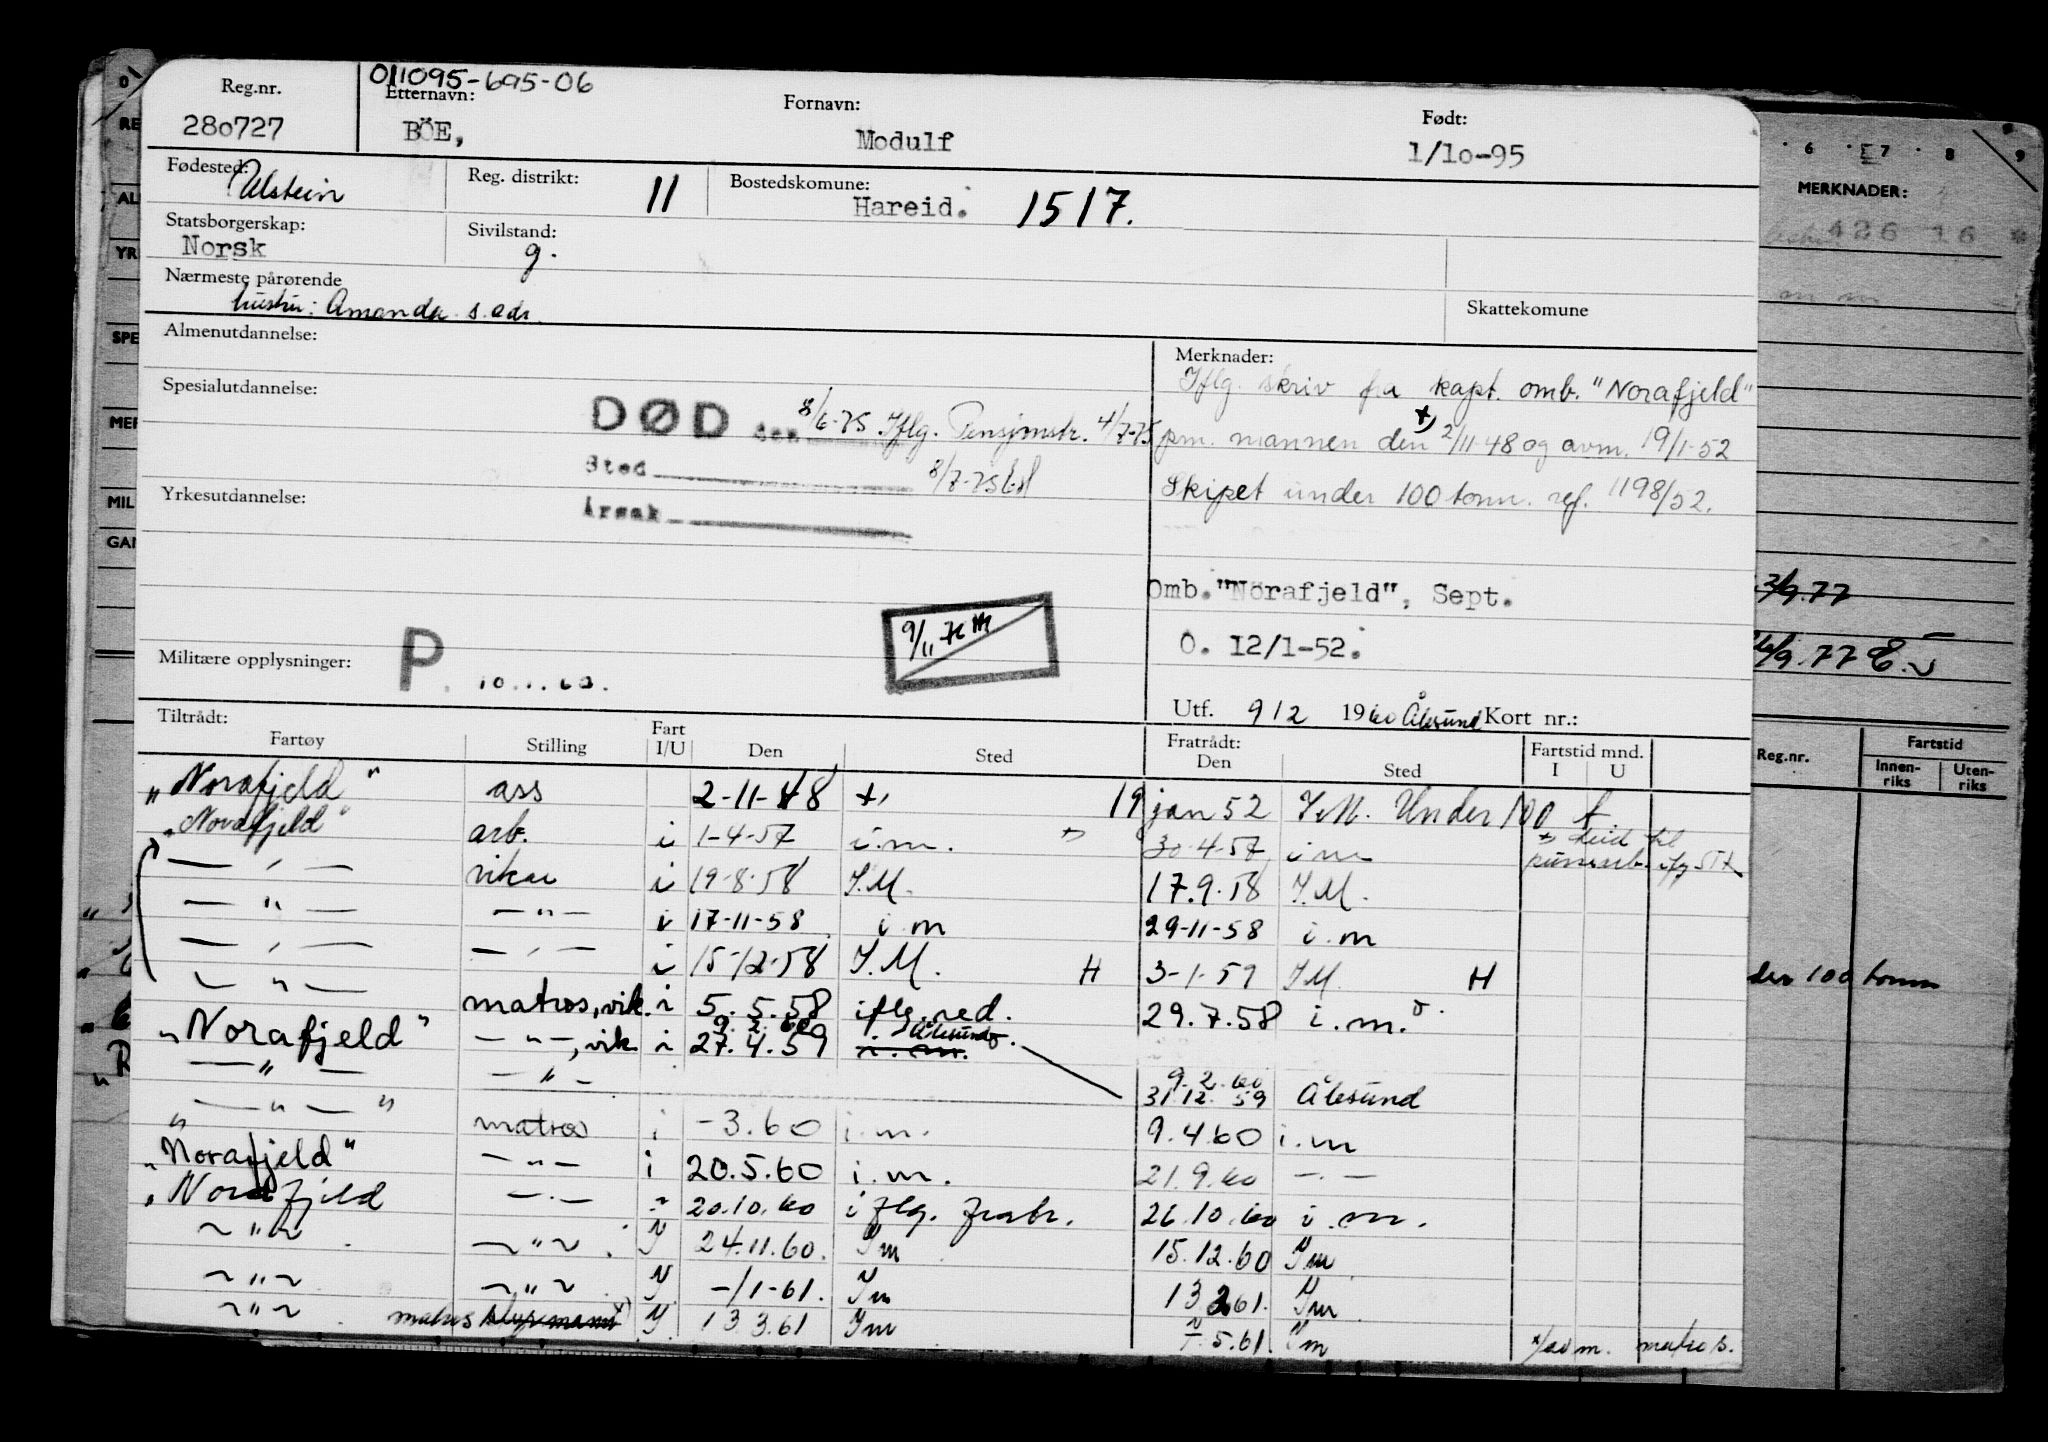 011095-695-06
Reg.nr. Etternavn: Fornavn: Født:
280727 BÖE, Modulf 1/10-95
Fødested: Ulstein Reg. distrikt: 11 Bostedskomune: Hareid. 1517.
Statsborgerskap: Norsk Sivilstand: g.
Nærmeste pårørende
hustru: Amanda s. adr. Skattekomune
Almenutdannelse: Merknader:
Iflg. skriv fra kapt. omb. "Norafjeld"
Spesialutdannelse:
DØD den 8/6-75 Iflg. Pensjonstr. 4/7-75
pm. mannen den +) 2/11-48 og avm. 19/1-52
Sted 8/7-75
Skipet under 100 tonn. ref. 1198/52.
Yrkesutdannelse: Årsak
Omb. "Norafjeld", Sept.
9/11
O. 12/1-52.
Militære opplysninger: P. 10.1.60.
Utf. 9/2 1960 Ålesund Kort nr.:
Tiltrådt: Fratrådt:
Fartøy Stilling Fart I/U Den Sted Den Sted Fartstid mnd. I U
"Norafjeld" ass 2-11-48 +) 19 jan 52 I.M. Under 100 t.
"Norafjeld" arb. i 1-4-57 i.m. 30-4-57 i m
— " — vikar i 19-8-58 I.M. 17.9.58 I.M.
— " — — " — i 17-11-58 i.m 29-11-58 i.m
— " — — " — i 15-12-58 I.M. H 3-1-59 I.M. H
— " — matros, vik. i 5.5.58 iflg. red. 29.7.58 i.m.
9.2.60 Ålesund
"Norafjeld" — " —, vik i 27.4.59 i.m.
— " — — " — 9.2.60
31.12.59 Ålesund
— " — " matros i -3.60 i.m. 9.4.60 i.m
"Norafjeld" — " — i 20.5.60 i.m. 21.9.60 — " —
"Norafjeld — " — 20.10.60 iflg. fratr. 26.10.60 i.m.
— " — — " — I 24.11.60. Im 15.12.60 Im
— " — — " — I -/1-61. Im 13 2 61. Im
— " — matros styrmann I 13 3.61 Im 5.61. Im x/ao m. matros.
6 7 8 9
MERKNADER:
426 16
3/9.77
Reg.nr. Fartstid
Innenriks Utenriks
der 100 tonn
RE
AL
YR
SPE
MER
MIL
GAN